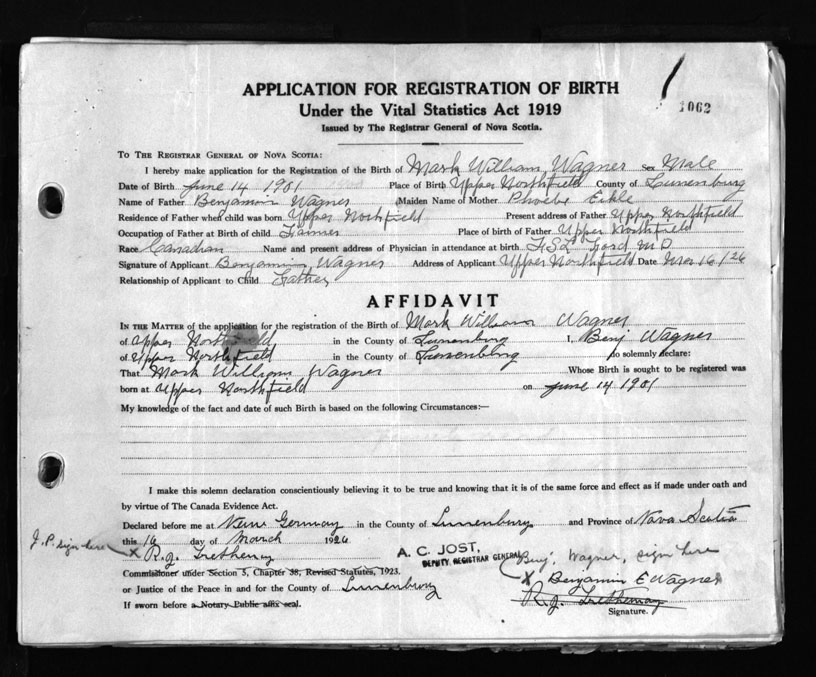 APPLICATION FOR REGISTRATION OF BIRTH
1062
Under the Vital Statistics Act 1919
Issued by The Registrar General of Nova Scotia.
To The Registrar General of Nova Scotia:
I hereby make application for the Registration of the Birth of Mark William Wagner Sex Male
Date of Birth June 14 1901 Place of Birth Upper Northfield County of Lunenburg
Name of Father Benjamin Wagner Maiden Name of Mother Phoebe
Residence of Father when child was born Upper Northfield Present address of Father Upper Northfield
Occupation of Father at Birth of child Farmer Place of birth of Father Upper Northfield
Race Canadian Name and present address of Physician in attendance at birth Ford M D
Signature of Applicant Benjamin Wagner Address of Applicant Upper Northfield Date Mar 16/26
Relationship of Applicant to Child Father
AFFIDAVIT
In the Matter of the application for the registration of the Birth of Mark William Wagner
of Upper Northfield in the County of Lunenburg I, Benj Wagner
of Upper Northfield in the County of Lunenburg do solemnly declare:
That Mark William Wagner Whose Birth is sought to be registered was
born at Upper Northfield on June 14 1901
My knowledge of the fact and date of such Birth is based on the following Circumstances:—
I make this solemn declaration conscientiously believing it to be true and knowing that it is of the same force and effect as if made under oath and
by virtue of The Canada Evidence Act.
Declared before me at New Germany in the County of Lunenburg and Province of Nova Scotia
this 16 day of March 1926
J.P. sign here X R. J. Tretheway
A. C. JOST,
DEPUTY REGISTRAR GENERAL
Benj. Wagner, sign here
Commissioner under Section 5, Chapter 38, Revised Statutes, 1923.
X Benjamin E Wagner
or Justice of the Peace in and for the County of Lunenburg
R. J. Tretheway
If sworn before a Notary Public affix seal.
Signature.